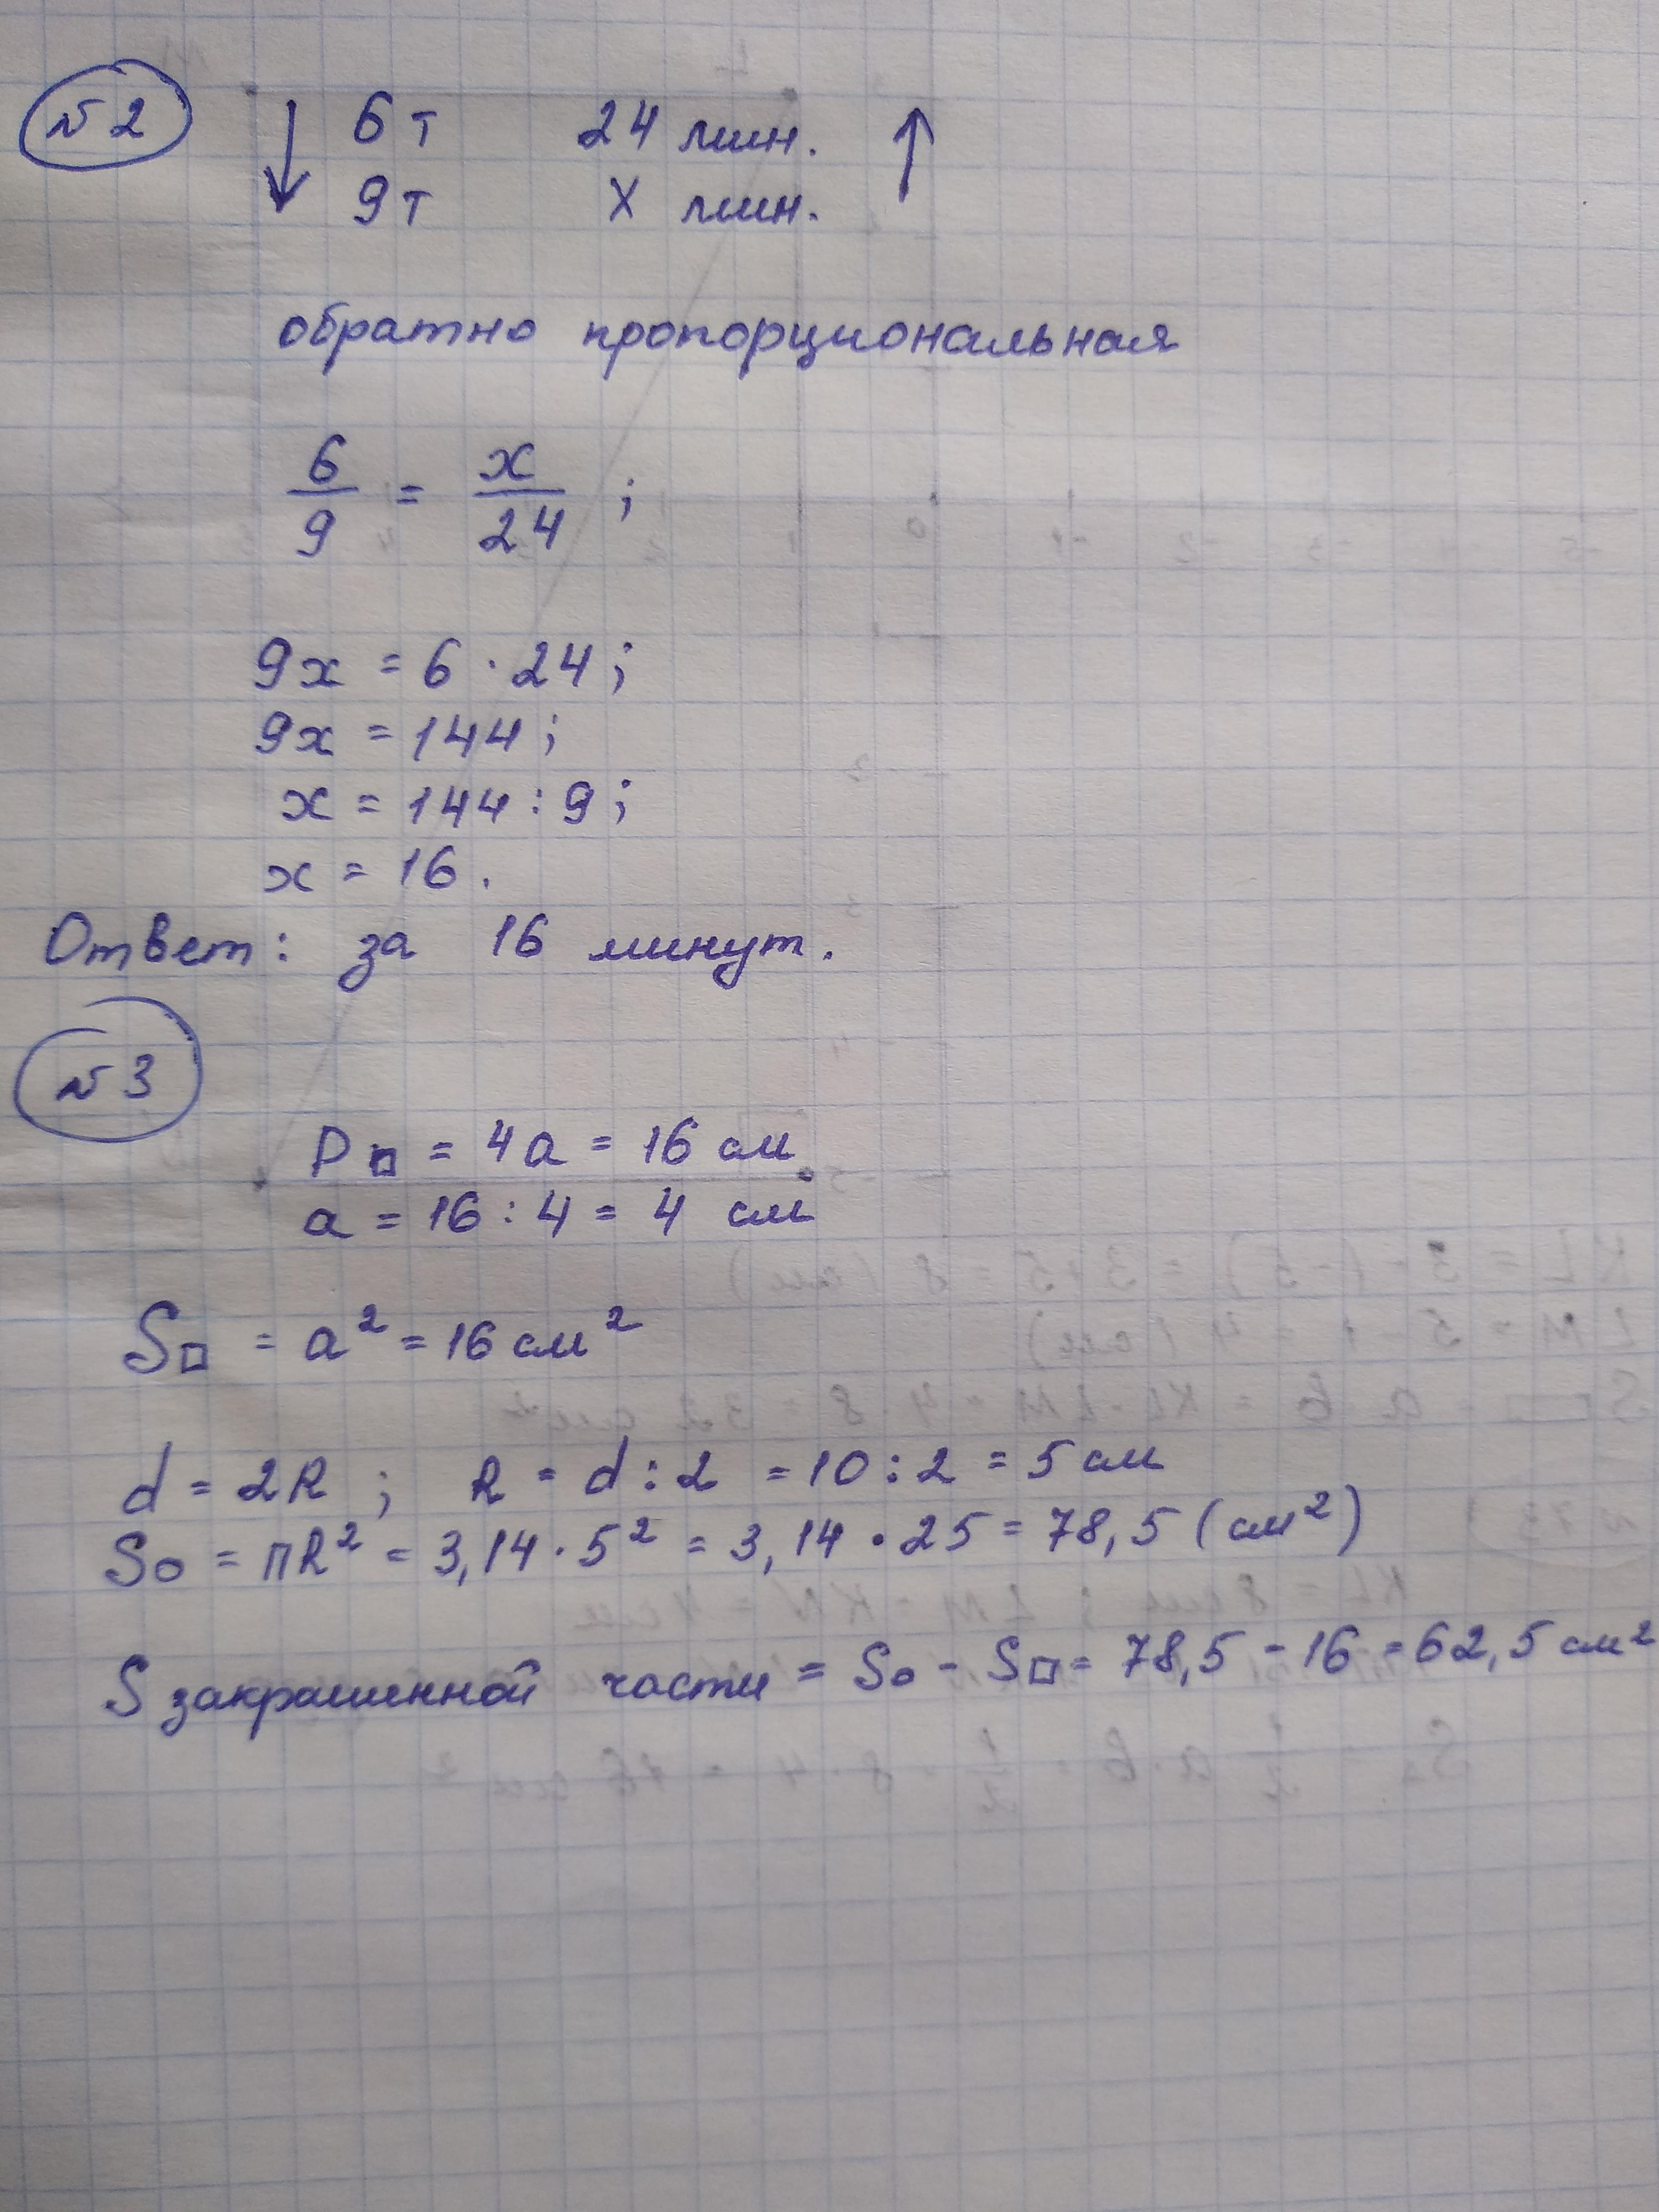 №2
↓ 6 т 24 мин. ↑
9 т X мин.
обратно пропорциональная
6/9 = x/24 ;
9x = 6 · 24 ;
9x = 144 ;
x = 144 : 9 ;
x = 16 .
Ответ: за 16 минут.
№3
P□ = 4a = 16 см
a = 16 : 4 = 4 см
S□ = a² = 16 см²
d = 2R ; R = d : 2 = 10 : 2 = 5 см
S○ = πR² = 3,14 · 5² = 3,14 · 25 = 78,5 (см²)
S закрашенной части = S○ - S□ = 78,5 - 16 = 62,5 см²